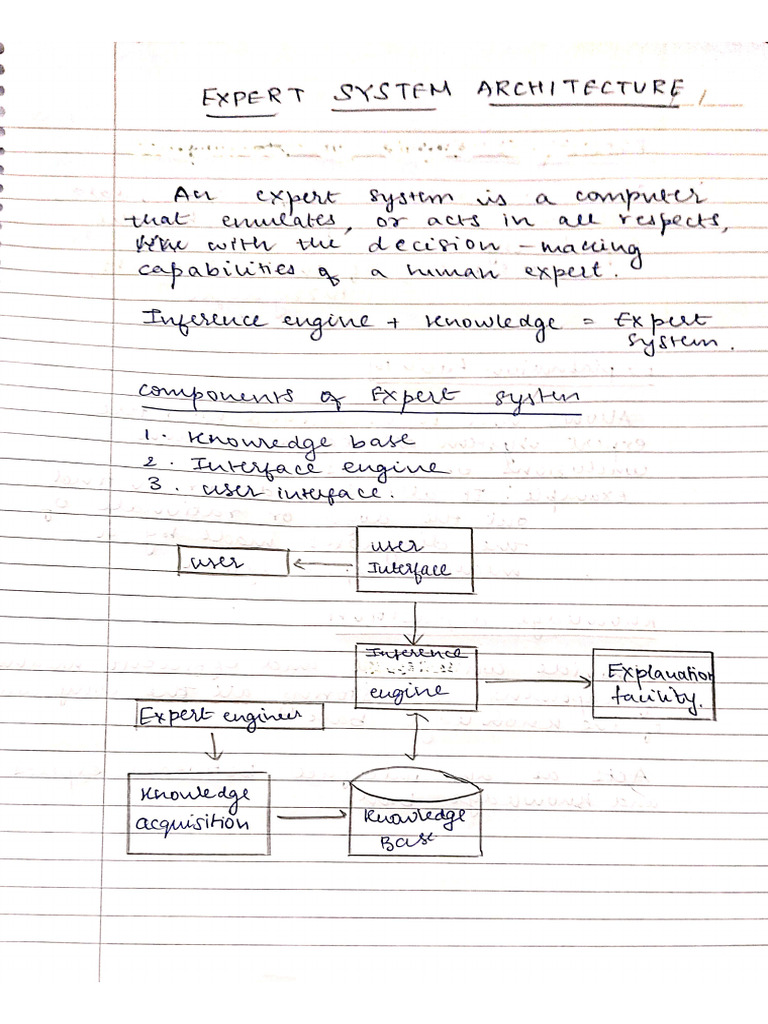 EXPERT SYSTEM ARCHITECTURE
An expert system is a computer
that emulates, or acts in all respects,
with the decision-making
capabilities of a human expert.
Inference engine + Knowledge = Expert
system.
Components of Expert system
1. Knowledge base
2. Interface engine
3. user interface.
user
user
Interface
Inference
engine
Explanation
facility.
Expert engineer
Knowledge
acquisition
Knowledge
Base